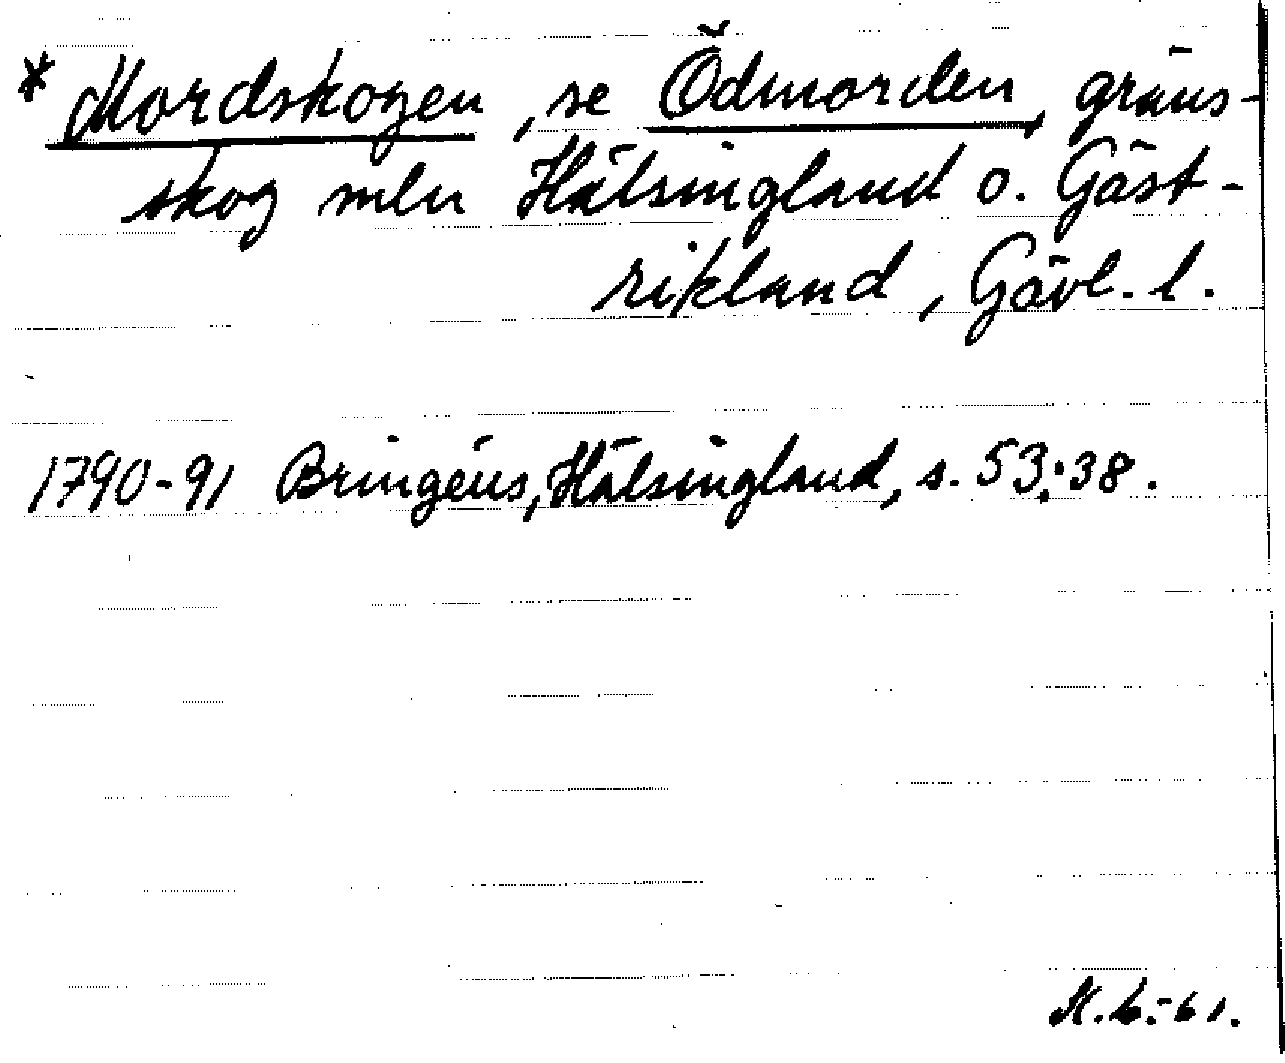 * Mordskogen, se Ödmorden, gräns-
skog mln Hälsingland o. Gäst-
rikland, Gävl. l.
1790-91 Bringéus, Hälsingland, s. 53:38.